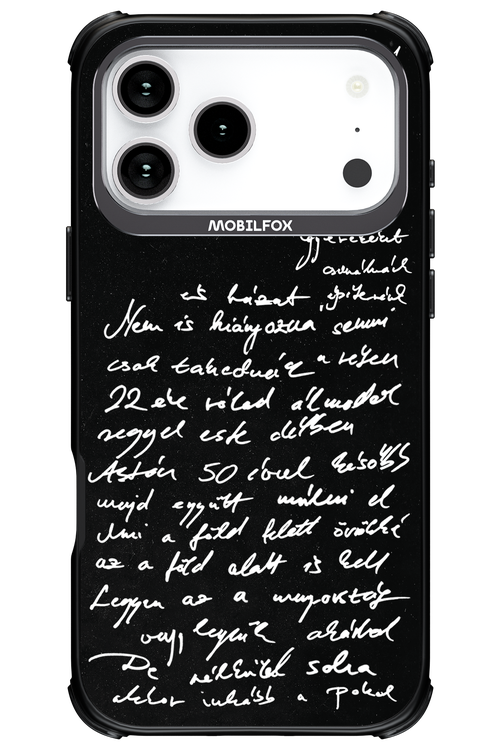 MOBILFOX
gyereket
csinálnák
és házat építenék
Nem is hiányozna semmi
csak takednéz a réfen
22 éve rólad álmodok
reggel este délben
Aztán 50 évvel később
majd együtt múlni el
Ami a föld felett örökké
az a föld alatt is kell
Legyen az a mennyország
vagy legyünk akárhol
De nélküled soha
akkor inkább a Pokol